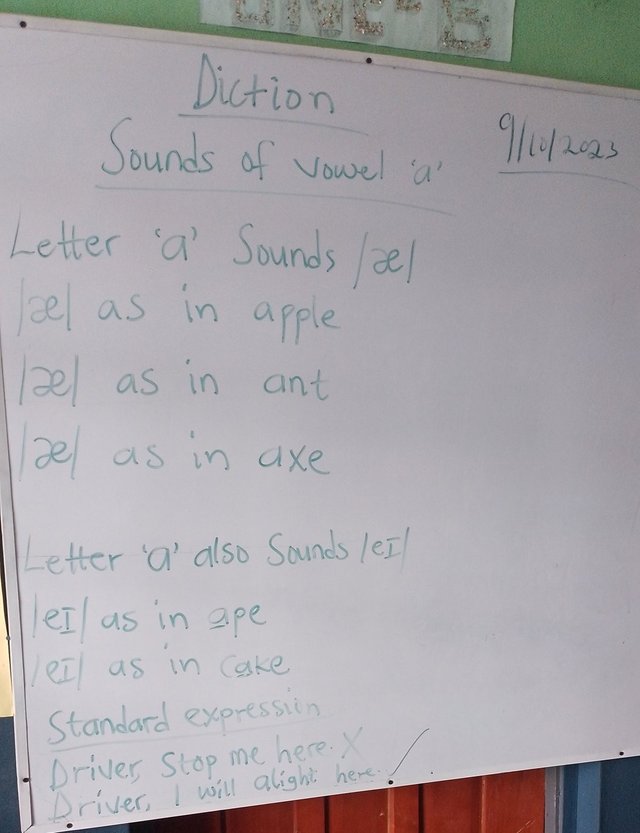 ONE-B
Diction
9/10/2023
Sounds of vowel 'a'
Letter 'a' Sounds /æ/
/æ/ as in apple
/æ/ as in ant
/æ/ as in axe
Letter 'a' also Sounds /eɪ/
/eɪ/ as in ape
/eɪ/ as in cake
Standard expression
Driver, Stop me here. X
Driver, I will alight here. ✓